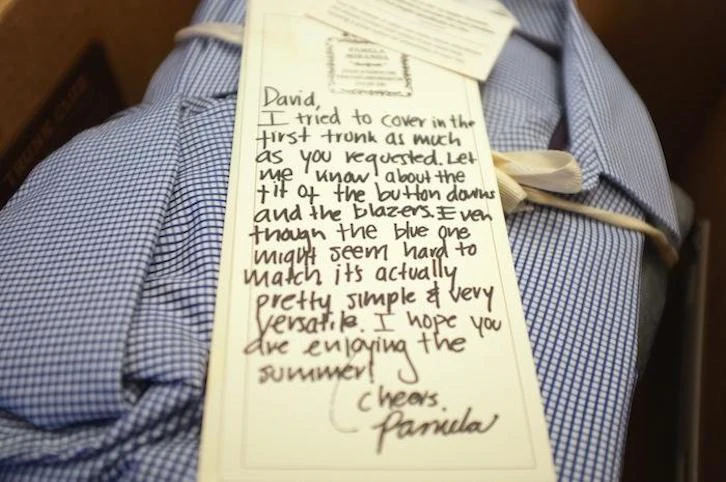 PAMELA
MIRANDA
David,
I tried to cover in the
first trunk as much
as you requested. Let
me know about the
fit of the button downs
and the blazers. Even
though the blue one
might seem hard to
match its actually
pretty simple & very
versatile. I hope you
are enjoying the
summer!
Cheers,
Pamela
TRUNK CLUB